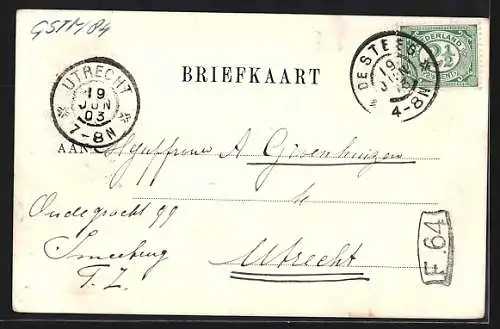 GSTM/84
UTRECHT
19
JUN
03
7-8N
DE STEEG
19
JUN
4-8N
NEDERLAND
2½
BRIEFKAART
AAN Mejuffrouw A Groenhuizen
te
Oudegracht 99
Utrecht
T. Z.
F.64